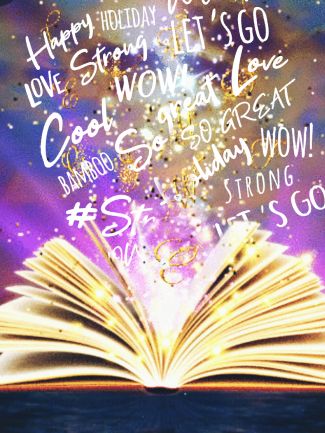 Happy HOLIDAY
LOVE Strong LET'S GO
Cool WOW! So great Love
BAMBOO SO GREAT
Holiday WOW!
#St
STRONG
LET'S GO